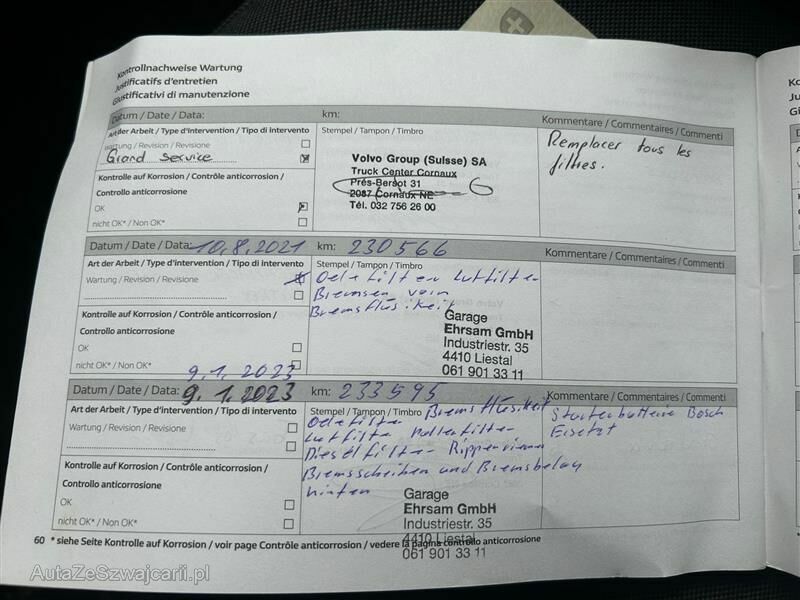 Kontrollnachweise Wartung
Justificatifs d'entretien
Giustificativi di manutenzione
Datum / Date / Data:
km:
Kommentare / Commentaires / Commenti
Art der Arbeit / Type d'intervention / Tipo di intervento
Wartung / Revision / Revisione
Grand Service
Kontrolle auf Korrosion / Contrôle anticorrosion /
Controllo anticorrosione
OK
nicht OK* / Non OK*
Stempel / Tampon / Timbro
Volvo Group (Suisse) SA
Truck Center Cornaux
Prés-Bersot 31
2087 Cornaux NE
Tél. 032 756 26 00
Remplacer tous les
filtres.
Datum / Date / Data: 10.8.2021
km: 230566
Kommentare / Commentaires / Commenti
Art der Arbeit / Type d'intervention / Tipo di intervento
Wartung / Revision / Revisione
Kontrolle auf Korrosion / Contrôle anticorrosion /
Controllo anticorrosione
OK
nicht OK* / Non OK*
Stempel / Tampon / Timbro
Oelefilter Lutfilter
Bremsen vorn
Bremsflüsikeit
Garage
Ehrsam GmbH
Industriestr. 35
4410 Liestal
061 901 33 11
9.1.2023
Datum / Date / Data: 9.1.2023
km: 233595
Kommentare / Commentaires / Commenti
Art der Arbeit / Type d'intervention / Tipo di intervento
Wartung / Revision / Revisione
Kontrolle auf Korrosion / Contrôle anticorrosion /
Controllo anticorrosione
OK
nicht OK* / Non OK*
Stempel / Tampon / Timbro Bremsflüsikeit
Oelefilter
Lutfilter Pollenfilter
Dieselfilter Rippenriemen
Bremsscheiben und Bremsbelag
hinten
Garage
Ehrsam GmbH
Industriestr. 35
4410 Liestal
061 901 33 11
Starterbatterie Bosch
Eisetzt
60 * siehe Seite Kontrolle auf Korrosion / voir page Contrôle anticorrosion / vedere la pagina controllo anticorrosione
AutaZeSzwajcarii.pl